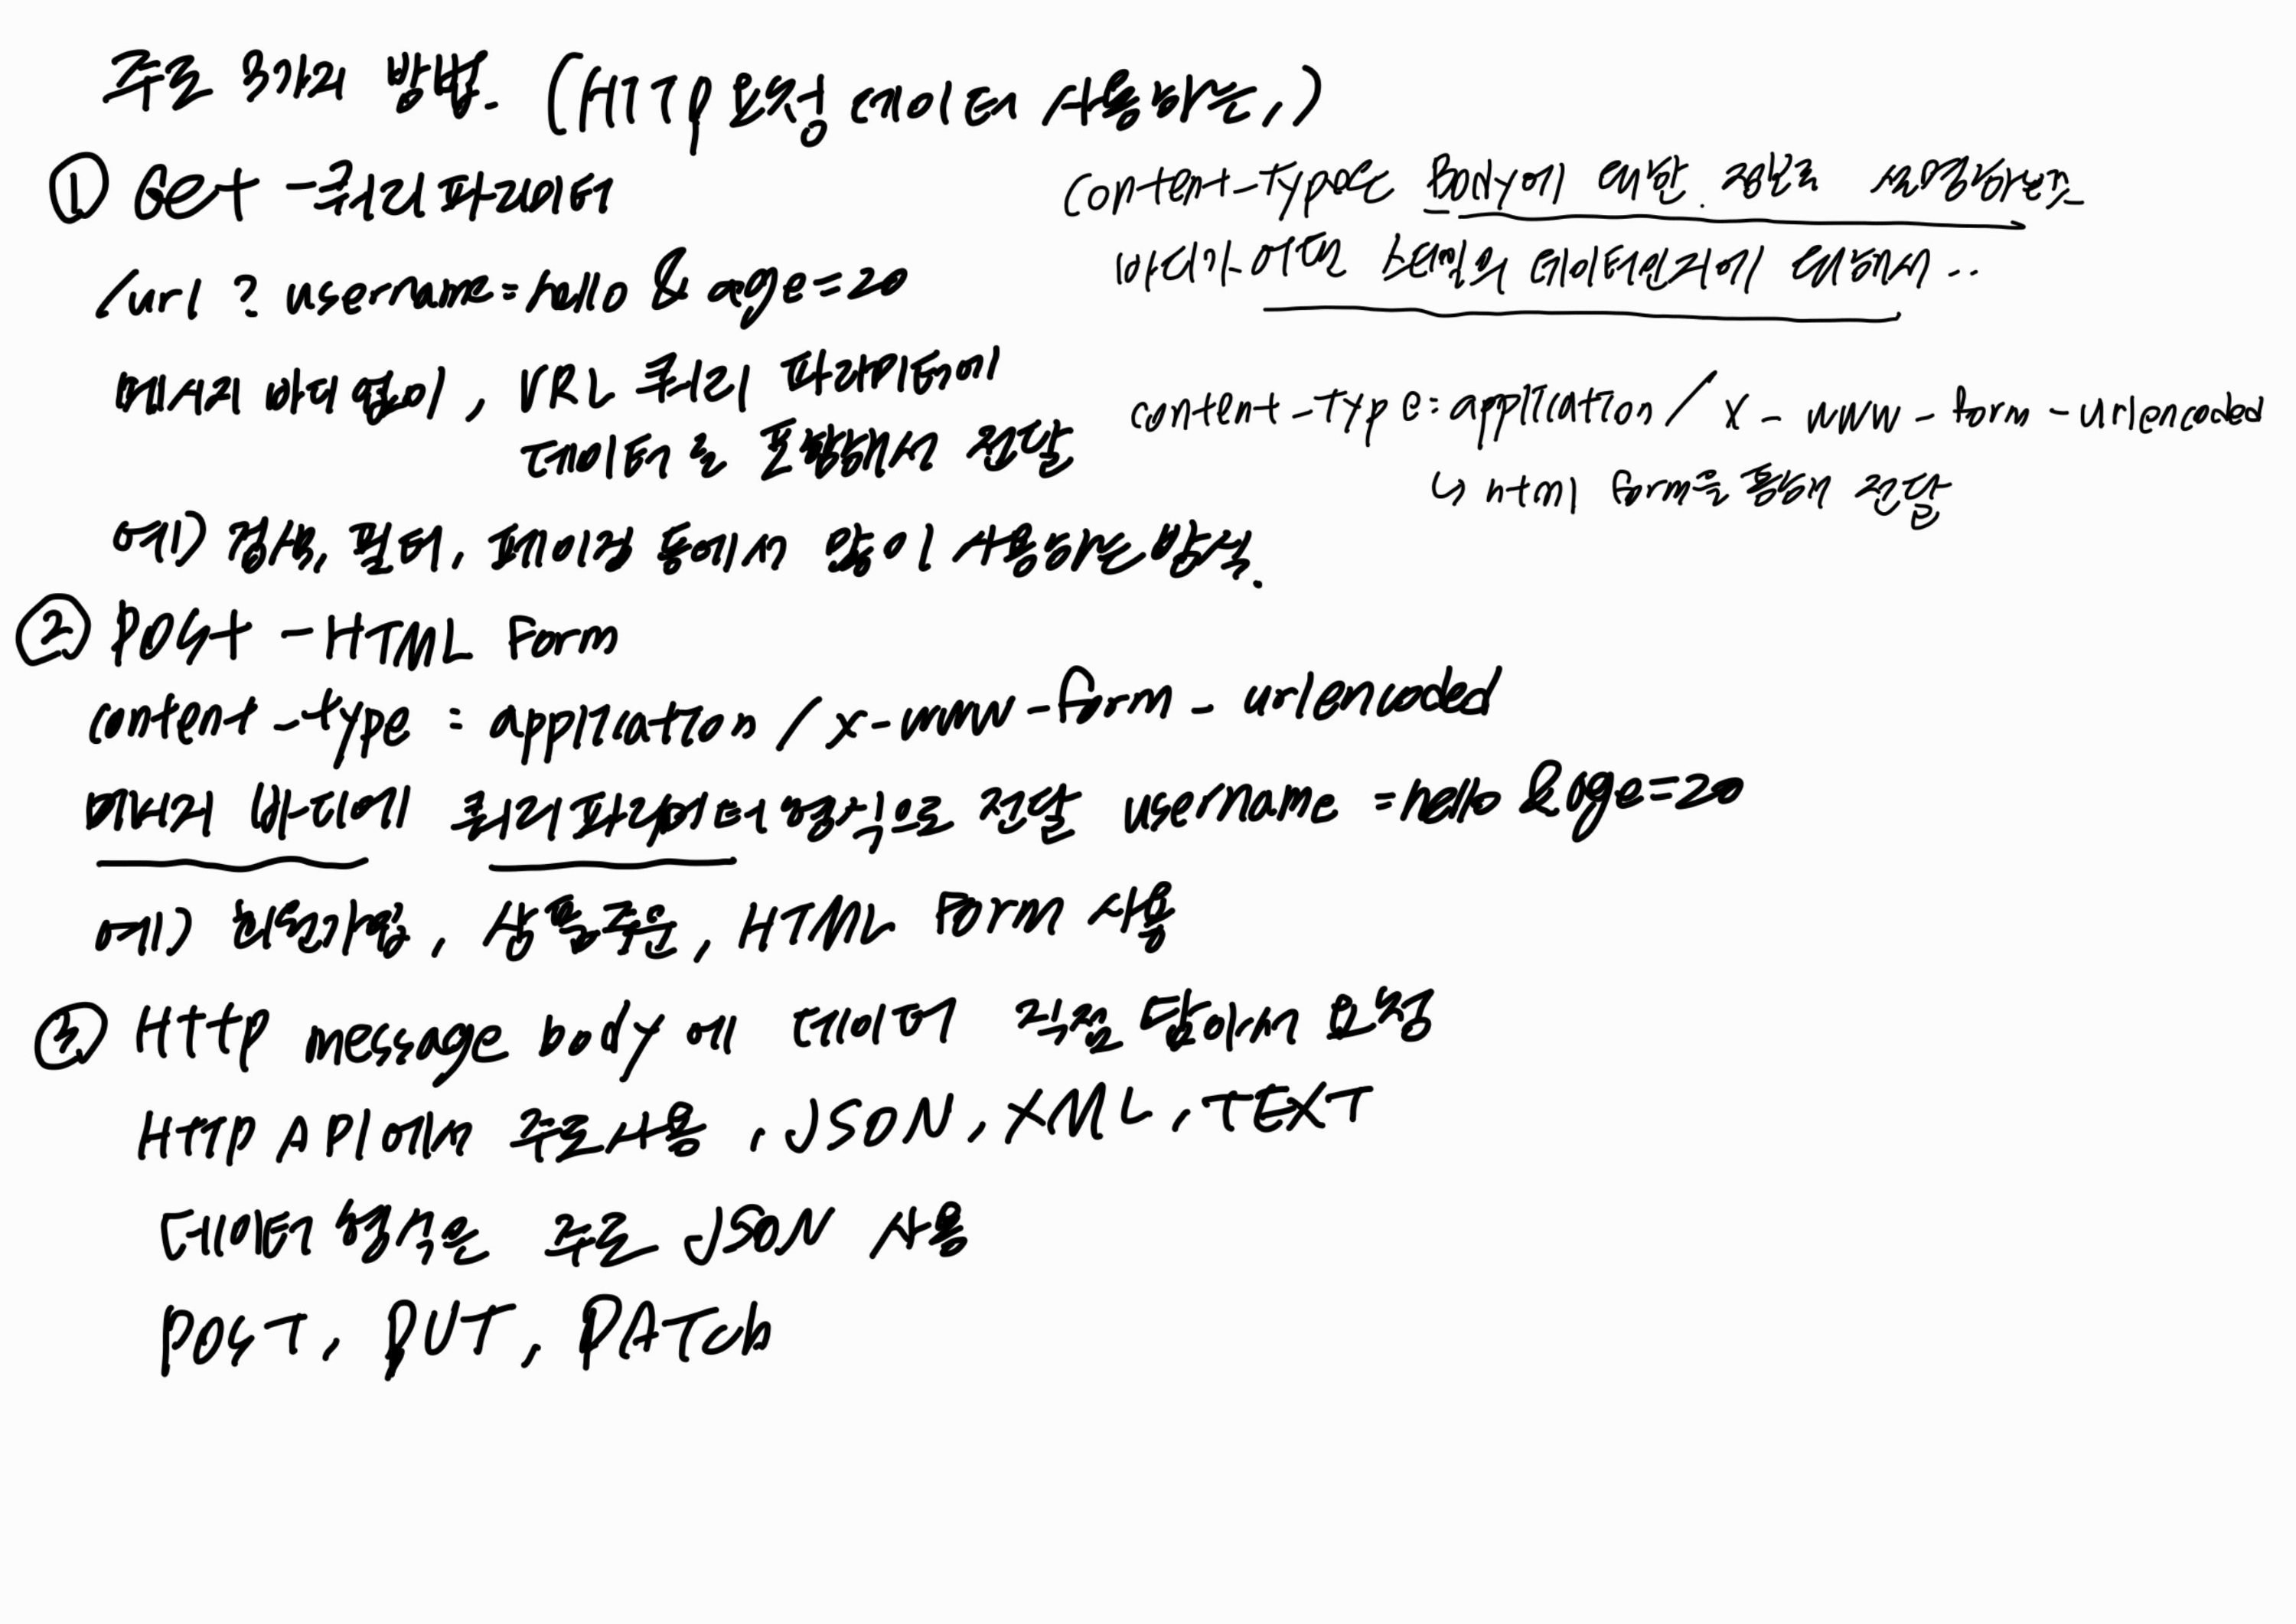 주로 3가지 방법. (HTTP 요청 데이터 사용하는,)
① Get - 쿼리 파라미터
/url ? username=hello & age=20
메세지 바디 없이, URL 쿼리 파라미터에
데이터를 포함해서 전달
예!) 검색, 필터, 페이징 등에서 많이 사용하는 방식.
content-type은 Body에 대한 정보를 설명하는것
바디가 어떤 스타일의 데이터인지에 대해서..
content-Type: application / x - www - form - urlencoded
↳ html form을 통해 전달
② POST - HTML Form
content - type : application / x-www-form - urlencoded
메세지 바디에 쿼리 파라미터 형식으로 전달 username =hello &age=20
예) 회원가입, 상품주문, HTML Form 사용
③ Http message body 에 데이터 직접 담아서 요청
HTTP API에서 주로사용, JSON, XML, TEXT
데이터 형식은 주로 JSON 사용
POST, PUT, PATch